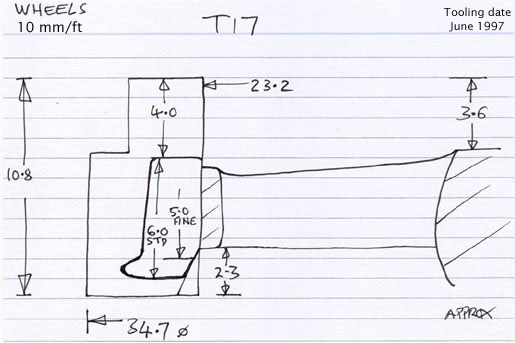 WHEELS T17 Tooling date
10 mm/ft June 1997
23.2
4.0 3.6
10.8
5.0
FINE
6.0
STD
2.3
34.7 ø
APPROX